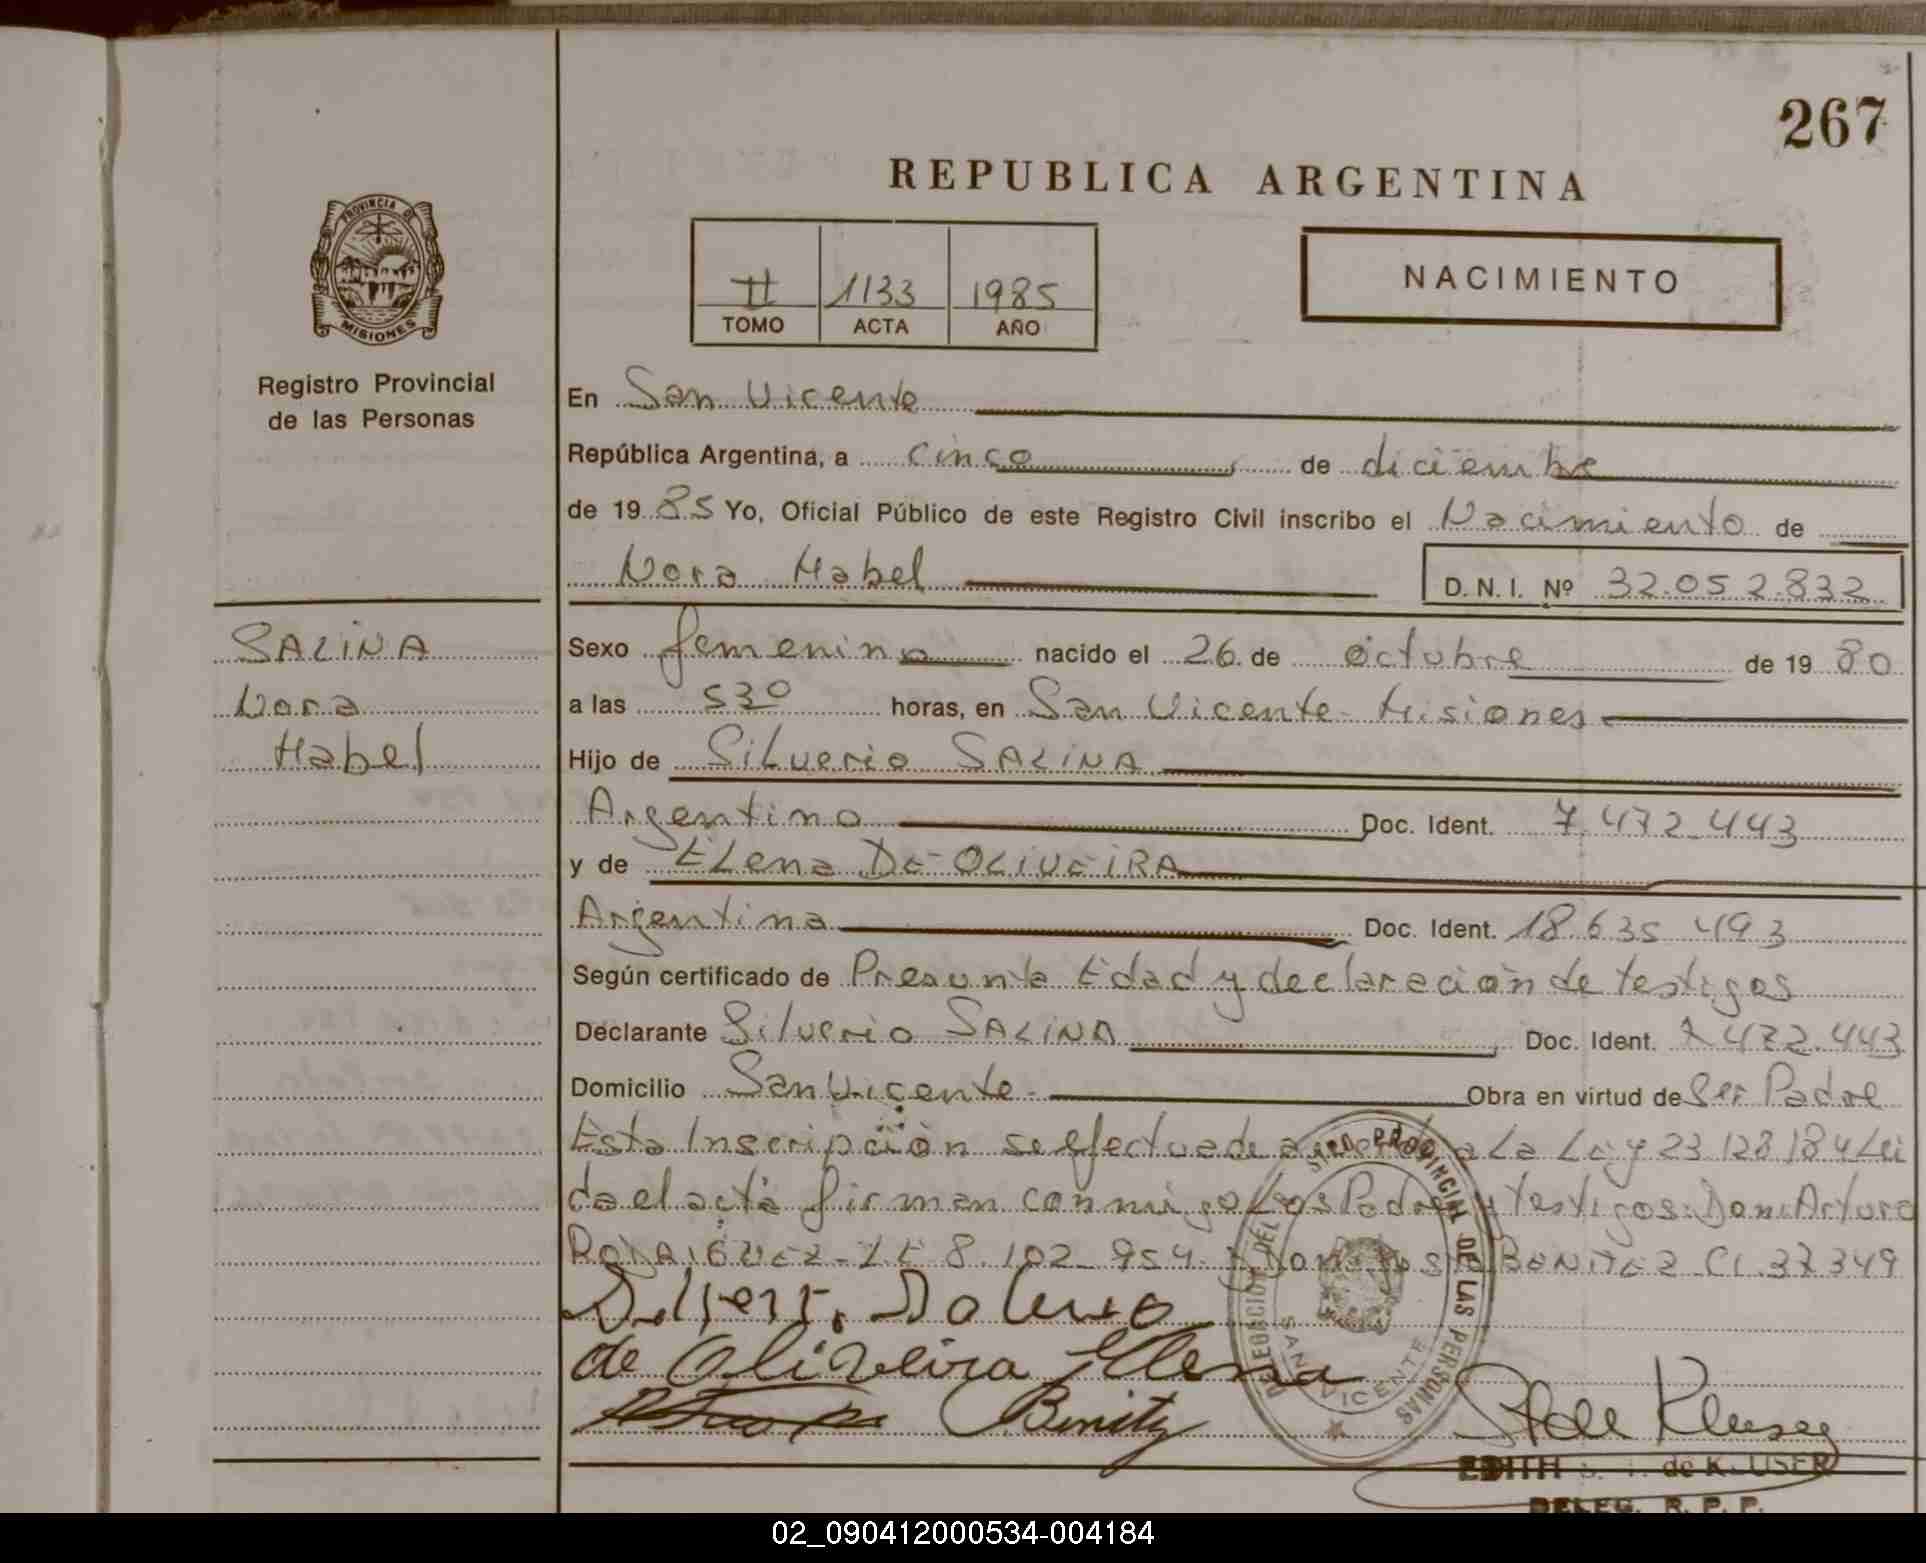 267
REPUBLICA ARGENTINA
PROVINCIA DE
MISIONES
Registro Provincial
de las Personas
II 1133 1985
TOMO ACTA AÑO
NACIMIENTO
En San Vicente
República Argentina, a cinco de diciembre
de 19 85 Yo, Oficial Público de este Registro Civil inscribo el Nacimiento de
Nora Mabel D. N. I. Nº 32.052.832
SALINA
Nora
Mabel
Sexo femenino nacido el 26 de Octubre de 19 80
a las 530 horas, en San Vicente - Misiones
Hijo de Silverio SALINA
Argentino Doc. Ident. 7.472.443
y de Elena DE OLIVEIRA
Argentina Doc. Ident. 18.635.493
Según certificado de Presunta Edad y declaración de testigos
Declarante Silverio SALINA Doc. Ident. 7.472.443
Domicilio San Vicente - Obra en virtud de Ser Padre
Esta Inscripción se efectua de a la Ley 23.128/84 Lei
da el acta firman conmigo Los Padres y testigos: Don: Arturo
RODRIGUEZ - LE 8.102.954 y Don BENITEZ CI. 37349
de Oliveira Elena
Benitez
DELEGACION DEL REGISTRO PROVINCIAL DE LAS PERSONAS
SAN VICENTE
EDITH de KLUSER
DELEG. R. P. P.
02_090412000534-004184